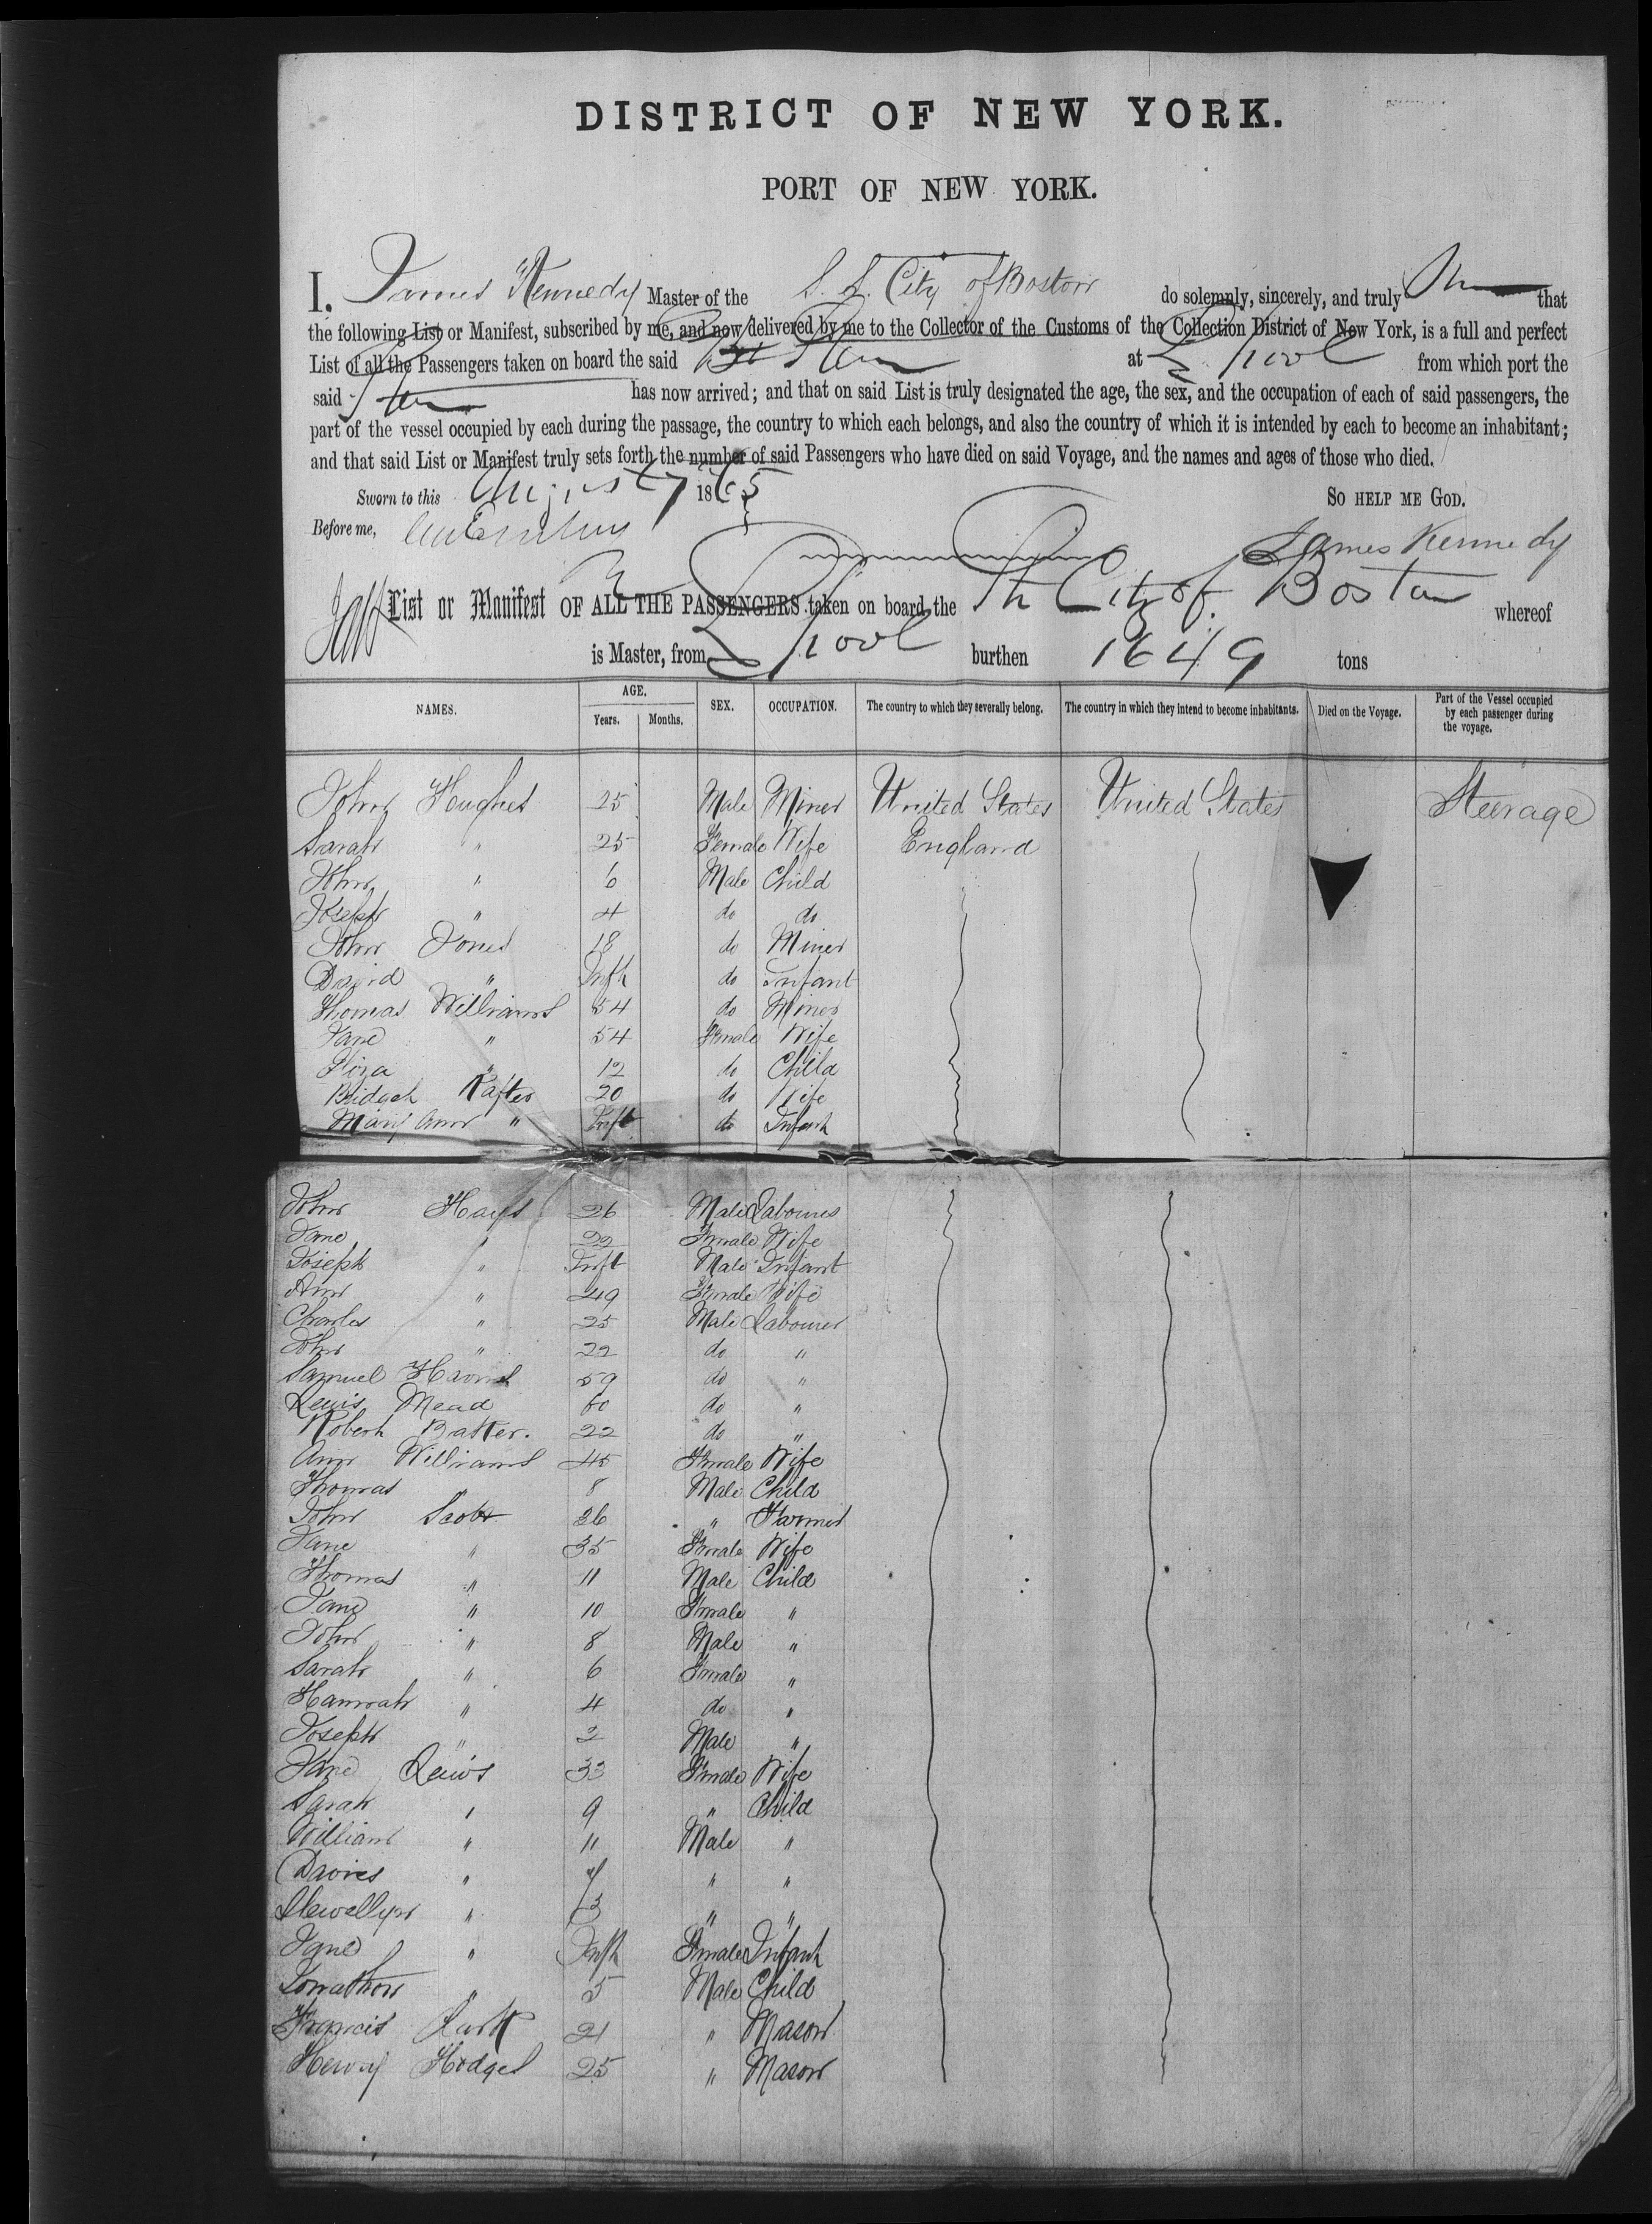 DISTRICT OF NEW YORK.
PORT OF NEW YORK.
I, James Kennedy Master of the S. S. City of Boston do solemnly, sincerely, and truly that
the following List or Manifest, subscribed by me, and now delivered by me to the Collector of the Customs of the Collection District of New York, is a full and perfect
List of all the Passengers taken on board the said at L'pool from which port the
said has now arrived; and that on said List is truly designated the age, the sex, and the occupation of each of said passengers, the
part of the vessel occupied by each during the passage, the country to which each belongs, and also the country of which it is intended by each to become an inhabitant;
and that said List or Manifest truly sets forth the number of said Passengers who have died on said Voyage, and the names and ages of those who died.
Sworn to this August 7 1865 SO HELP ME GOD.
Before me, James Kennedy
List or Manifest OF ALL THE PASSENGERS taken on board the City of Boston whereof
is Master, from L'pool burthen 1649 tons
NAMES. AGE. Years. Months. SEX. OCCUPATION. The country to which they severally belong. The country in which they intend to become inhabitants. Died on the Voyage. Part of the Vessel occupied by each passenger during the voyage.
John Hughes 25 Male Miner United States United States Steerage
Sarah " 25 Female Wife England
John " 6 Male Child
Joseph " 4 do do
John Jones 18 do Miner
David " Inft do Infant
Thomas Williams 54 do Miner
Jane " 54 Female Wife
Eliza " 12 do Child
Bridget Rafter 20 do Wife
Mary Ann " Inft do Infant
John Hays 26 Male Labourer
Jane " 22 Female Wife
Joseph " Inft Male Infant
Ann " 49 Female Wife
Charles " 25 Male Labourer
John " 22 do "
Samuel Harris 59 do "
Lewis Mead 60 do "
Robert Barker. 22 do "
Ann Williams 45 Female Wife
Thomas " 8 Male Child
John Scott 36 " Farmer
Jane " 35 Female Wife
Thomas " 11 Male Child
Jane " 10 Female "
John " 8 Male "
Sarah " 6 Female "
Hannah " 4 do "
Joseph " 2 Male "
Jane Lewis 33 Female Wife
Sarah " 9 " Child
William " 11 Male "
Davies " 7 " "
Llewellyn " 3 " "
Jane " Inft Female Infant
Jonathon " 5 Male Child
Francis Clark 21 " Mason
Henry Hodges 25 " Mason